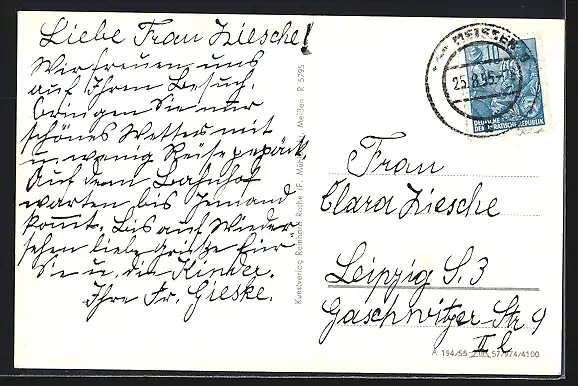 Liebe Frau Ziesche!
Wir freuen uns
auf Ihren Besuch.
Bringen Sie nur
schönes Wetter mit
u. wenig Reisegepäck
Auf dem Bahnhof
warten bis Jemand
kommt. Bis auf Wieder-
sehen liebe Grüße für
Sie u. die Kinder.
Ihre Fr. Gieske.
Kunstverlag Reinhard Rothe (F. Mühl Meißen R 5795
MEISSEN
25.8.55
10
DEUTSCHE
DEMOKRATISCHE REPUBLIK
Frau
Clara Ziesche
Leipzig S. 3
Gaschwitzer-Str 9
II l
A 194/55 57/974/4100